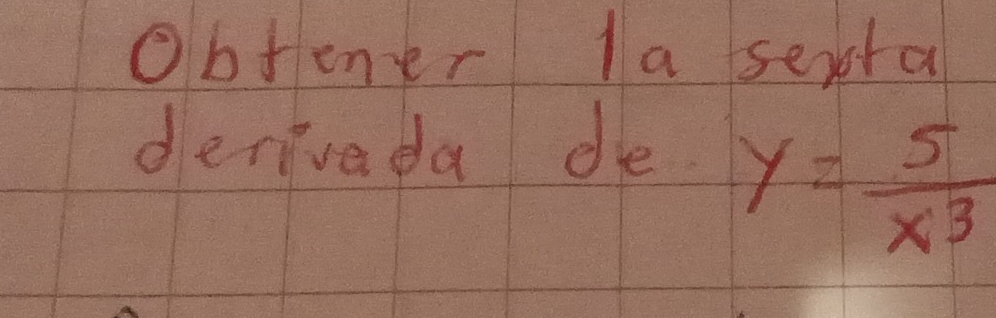 Obtener la sexta
derivada de y = 5/x³